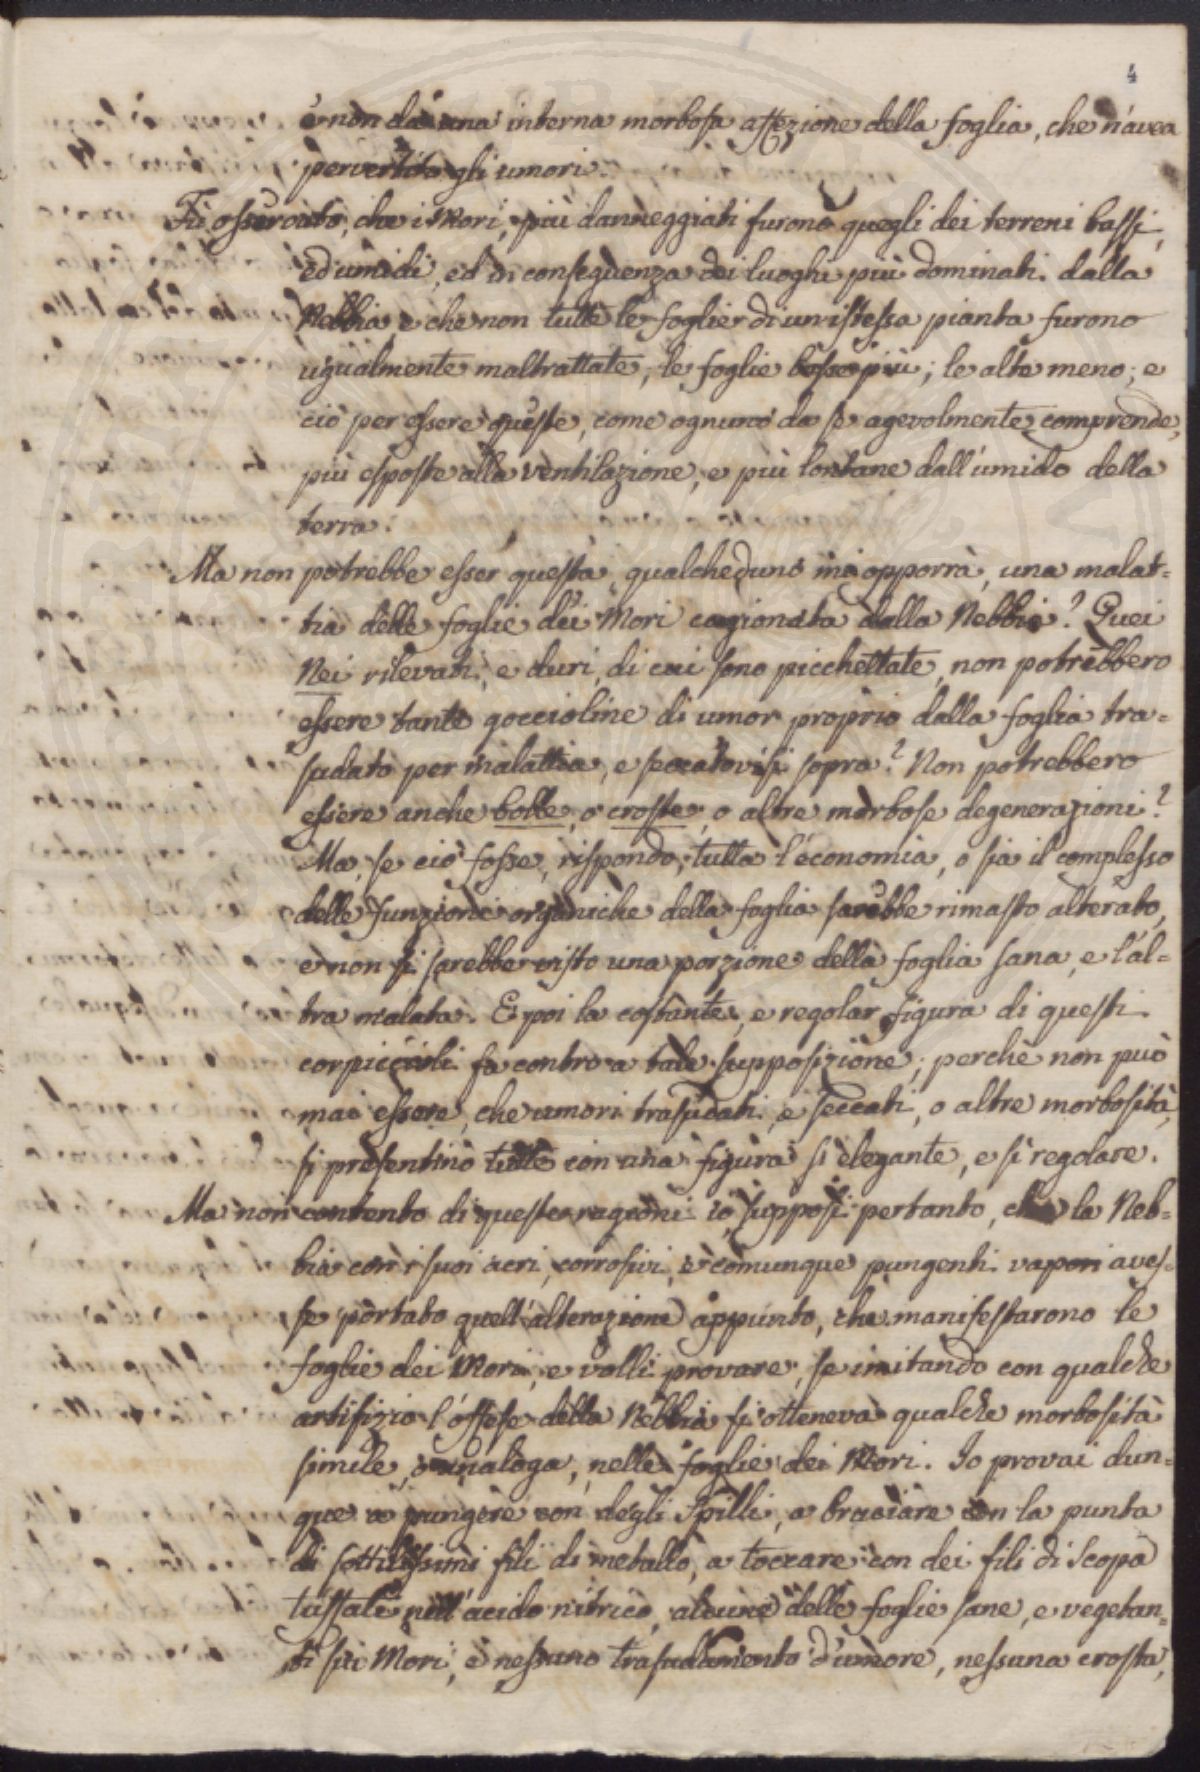 4
e non da una interna morbosa affezione della foglia, che n'avea
pervertito gli umori.
Fù osservato, che i Mori, più danneggiati furono quegli dei terreni bassi,
ed umidi, ed in conseguenza dei luoghi più dominati dalla
Nebbia e che non tutte le foglie di un istessa pianta furono
ugualmente maltrattate; le foglie basse più; le alte meno; e
ciò per essere queste, come ognuno da se agevolmente comprende,
più esposte alla ventilazione, e più lontane dall'umido della
terra.
Ma non potrebbe esser questa, qualcheduno mi opporrà, una malat=
tia delle foglie dei Mori cagionata dalla Nebbia? Quei
Nei rilevati, e duri, di cui sono picchettate, non potrebbero
essere tante goccioline di umor proprio dalla foglia tra=
sudato per malattia, e seccatovisi sopra? Non potrebbero
essere anche bolle, o croste, o altre morbose degenerazioni?
Ma, se ciò fosse, rispondo, tutta l'economia, o sia il complesso
delle funzioni organiche della foglia sarebbe rimasto alterato,
e non si sarebbe visto una porzione della foglia sana, e l'al=
tra malata. E poi la costante, e regolar figura di questi
corpicciuoli fa contro a tale supposizione; perchè non può
mai essere, che umori trasudati, e seccati, o altre morbosità,
si presentino tutte con una figura sì elegante, e sì regolare.
Ma non contento di queste ragioni io supposi pertanto, che la Neb=
bia con i suoi acri, corrosivi, e comunque pungenti vapori aves=
se portato quell'alterazione appunto, che manifestarono le
foglie dei Mori, e volli provare, se imitando con qualche
artifizio l'offese della Nebbia si otteneva qualche morbosità
simile, o analoga, nelle foglie dei Mori. Io provai dun=
que a pungere con degli Spilli, a bruciare con la punta
di sottilissimi fili di metallo, a toccare con dei fili di Scopa
tuffati nell'acido nitrico, alcune delle foglie sane, e vegetan=
ti sui Mori, e nessuno trasudamento d'umore, nessuna crosta,